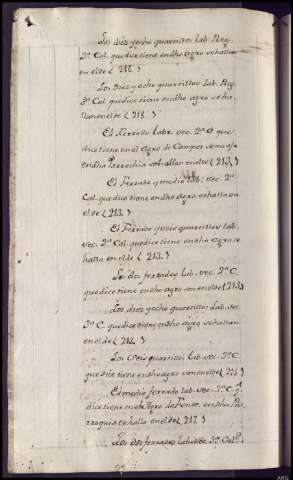 Los diez y ocho quarttillos lab. Reg.
2ª Cal. que dice tiene en dho agro se hallan
en el de (213.)
Los Diez y ocho quarttillos lab. Reg.
3ª Cal. que dice tiene en dho agro se ha
llan en el de (213.)
El Ferrado labr. sec. 2ª C que
dice tiene en el agro de Campos
en dha Parrochia se hallan en el de (213.)
El Ferrado y medio lab. sec. 2ª
Cal. que dice tiene en dho agro se halla en
el de (213.)
El Ferrado y seis quarttillos lab.
sec. 2ª Cal. que dice tiene en dho agro se
halla en el de (213.)
Los dos ferrados lab. sec. 2ª C.
que dice tiene en dho agro son en el de (213.)
Los diez y ocho quarttillos Lab. sec.
3ª C. que dice tiene en dho agro se hallan
en el de (212.)
Los Seis quarttillos lab. sec. 3ª C.
que dice tiene en dho agro van en el de (213.)
El medio ferrado lab. sec. 3ª C. q
dice tiene en el Agro da en dha Pa
rroquia se halla en el de (217.)
Los dos ferrados lab. sec. 3ª Cal.